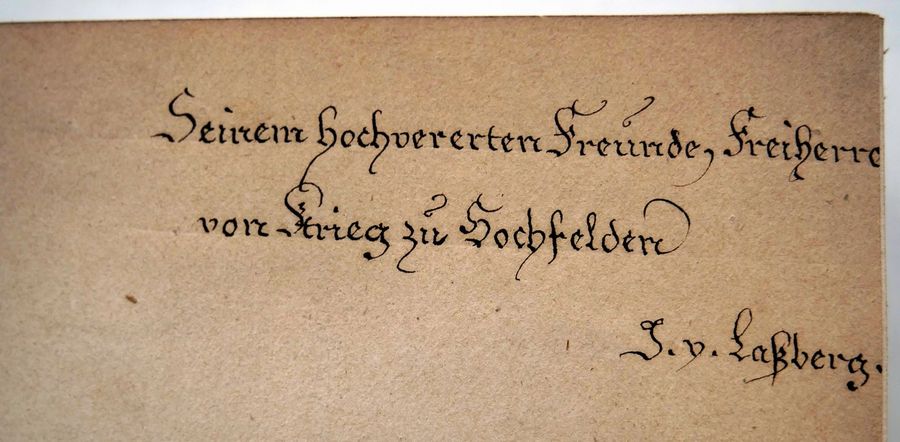 Seinem hochvererten Freunde, Freiherre
von Krieg zu Hochfelden
J. v. Laßberg.